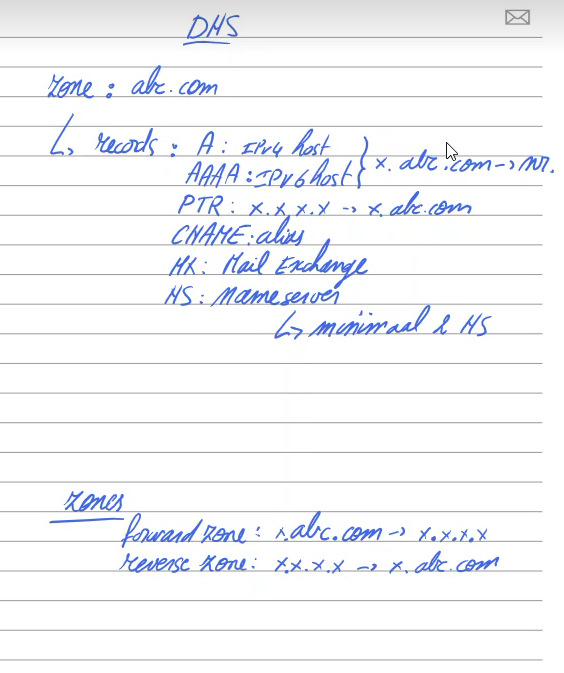 DNS
zone : abc.com
↳ records : A : IPv4 host
AAAA : IPv6 host } x.abc.com → nr.
PTR : x.x.x.x → x.abc.com
CNAME : alias
MX : Mail Exchange
NS : Nameserver
↳ minimaal 2 NS
zones
forward zone : x.abc.com → x.x.x.x
reverse zone : x.x.x.x → x.abc.com